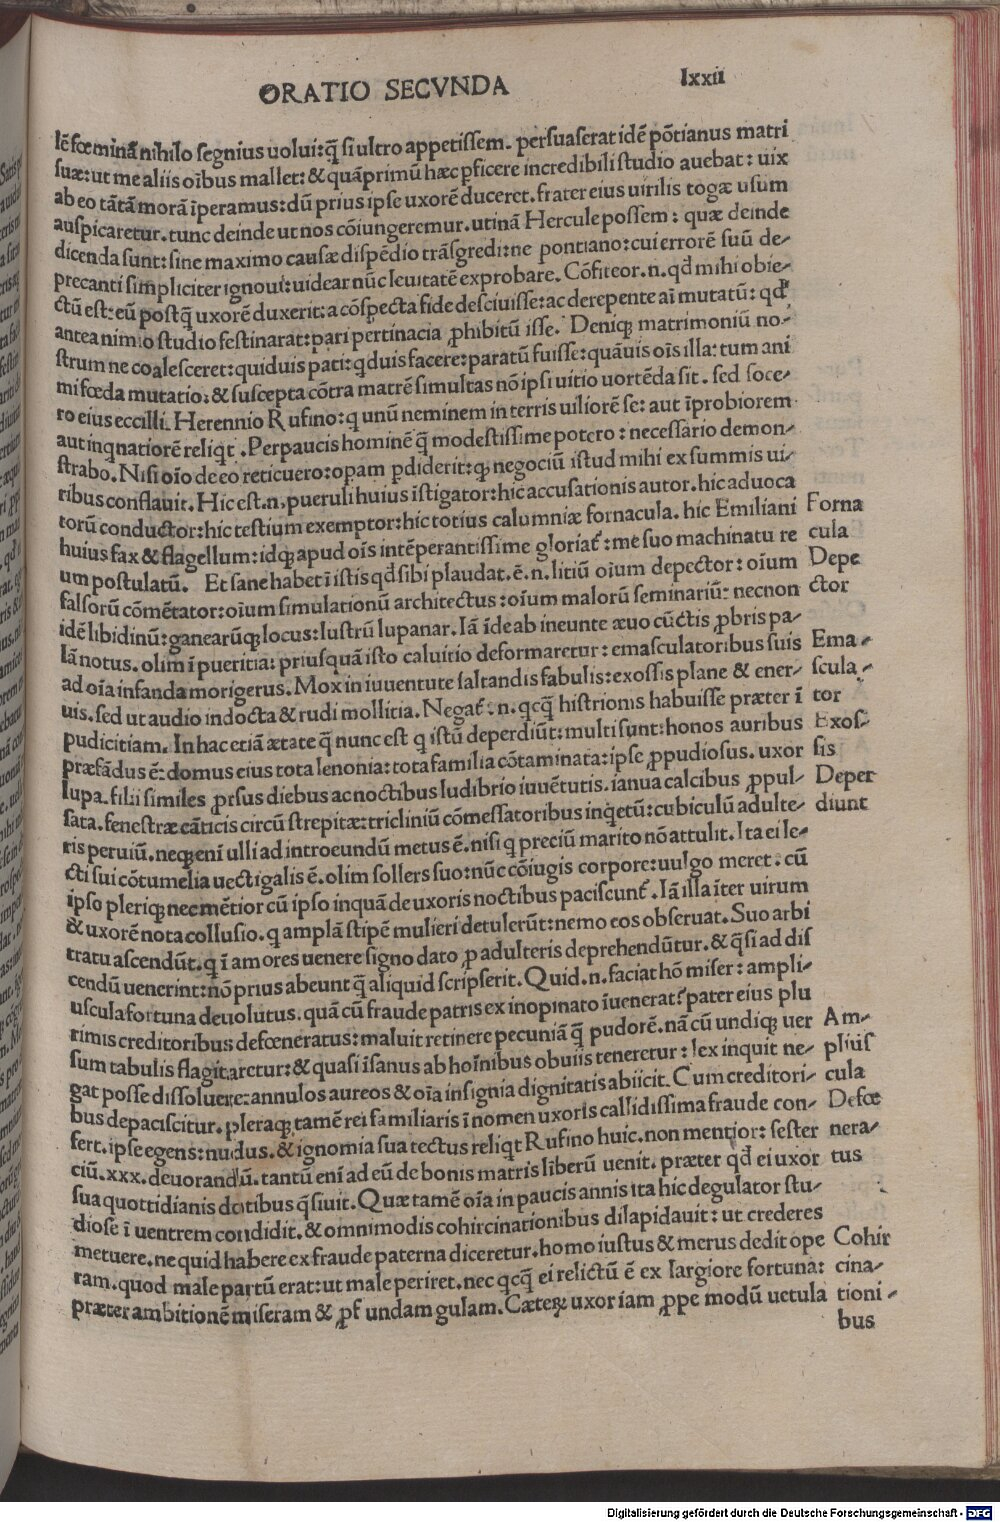 ORATIO SECVNDA lxxii
lē fœminā nihilo segnius uolui: q̄ si ultro appetissem. persuaserat idē pōtianus matri
suæ: ut me aliis oībus mallet: & quāprimū hæc ꝑficere incredibili studio auebat: uix
ab eo tātā morā īperamus: dū prius ipse uxorē duceret. frater eius uirilis togæ usum
auspicaretur. tunc deinde ut nos cōiungeremur. utinā Hercule possem: quæ deinde
dicenda sunt: sine maximo causæ dispēdio trāsgredi: ne pontiano: cui errorē suū de⸗
precanti simpliciter ignoui: uidear nūc leuitatē exprobare. Cōfiteor. n. qđ mihi obie⸗
ctū est: eū postq̄ uxorē duxerit: a cōspecta fide desciuisse: ac derepente aī mutatū: qđ
antea nimio studio festinarat: pari pertinacia ꝓhibitū isse. Deniqꝫ matrimoniū no⸗
strum ne coalesceret: quiduis pati: qduis facere: paratū fuisse: quāuis oīs illa: tum ani
mi fœda mutatio: & suscepta cōtra matrē simultas nō ipsi uitio uortēda sit. sed soce⸗
ro eius eccilli. Herennio Rufino: q unū neminem in terris uiliorē se: aut īprobiorem
aut inqnatiorē reliqt. Perpaucis hominē q̄ modestissime potero: necessario demon⸗
strabo. Nisi oīo de eo reticuero: opam ꝑdiderit: qꝫ negociū istud mihi ex summis ui⸗
ribus conflauit. Hic est. n. pueruli huius īstigator: hic accusationis autor. hic aduoca
torū conductor: hic testium exemptor: hic totius calumniæ fornacula. hic Emiliani Forna
huius fax & flagellum: idqꝫ apud oīs intēperantissime gloriat᷑: me suo machinatu re cula
um postulatū. Et sane habet ī istis qđ sibi plaudat. ē. n. litiū oīum depector: oīum Depe
falsorū cōmētator: oīum simulationū architectus: oīum malorū seminariū: necnon ctor
idē libidinū: ganearūqꝫ locus: lustrū lupanar. Iā īde ab ineunte æuo cūctis ꝓbris pa⸗
lā notus. olim ī pueritia: priusquā isto caluitio deformaretur: emasculatoribus suis Ema⸗
ad oīa infanda morigerus. Mox in iuuentute saltandis fabulis: exossis plane & ener⸗ scula⸗
uis. sed ut audio indocta & rudi mollitia. Negat᷑. n. qcq̄ histrionis habuisse præter ī tor
pudicitiam. In hac etiā ætate q̄ nunc est q istū deperdiūt: multi sunt: honos auribus Exos⸗
præfādus ē: domus eius tota lenonia: tota familia cōtaminata: ipse ꝓpudiosus. uxor sis
lupa. filii similes ꝓrsus diebus ac noctibus ludibrio iuuētutis. ianua calcibus ꝓpul⸗ Deper
sata. fenestræ cāticis circū strepitæ: tricliniū cōmessatoribus inqetū: cubiculū adulte⸗ diunt
ris peruiū. neqꝫ enī ulli ad introeundū metus ē. nisi q preciū marito nō attulit. Ita ei le⸗
cti sui cōtumelia uectigalis ē. olim sollers suo: nūc cōiugis corpore: uulgo meret. cū
ipso pleriqꝫ nec mētior cū ipso inquā de uxoris noctibus paciscunt᷑. Iā illa īter uirum
& uxorē nota collusio. q amplā stipē mulieri detulerūt: nemo eos obseruat. Suo arbi
tratu ascendūt. q ī amores uenere signo dato ꝑ adulteris deprehendūtur. & q̄si ad dis
cendū uenerint: nō prius abeunt q̄ aliquid scripserit. Quid. n. faciat hō miser: ampli⸗
uscula fortuna deuolutus. quā cū fraude patris ex inopinato īuenerat? pater eius plu
rimis creditoribus defœneratus: maluit retinere pecuniā q̄ pudorē. nā cū undiqꝫ uer Am⸗
sum tabulis flagitaretur: & quasi īsanus ab hoīnibus obuiis teneretur: lex inquit ne⸗ pliús
gat posse dissoluere: annulos aureos & oīa insignia dignitatis abiicit. Cum creditori⸗ cula
bus depaciscitur. pleraqꝫ tamē rei familiaris ī nomen uxoris callidissima fraude con⸗ Defœ
fert. ipse egens: nudus. & ignomia sua tectus reliqt Rufino huic. non mentior: sester nera⸗
ciū. xxx. deuorandū. tantū enī ad eū de bonis matris liberū uenit. præter qđ ei uxor tus
sua quottidianis dotibus q̄siuit. Quæ tamē oīa in paucis annis ita hic degulator stu⸗
diose ī uentrem condidit. & omnimodis cohircinationibus dilapidauit: ut crederes
metuere. ne quid habere ex fraude paterna diceretur. homo iustus & merus dedit ope Cohir
ram. quod male partū erat: ut male periret. nec qcq̄ ei relictū ē ex largiore fortuna: cina⸗
præter ambitionē miseram & ꝓfundam gulam. Cæterꝝ uxor iam ꝓpe modū uetula tioni⸗
bus
Digitalisierung gefördert durch die Deutsche Forschungsgemeinschaft - DFG